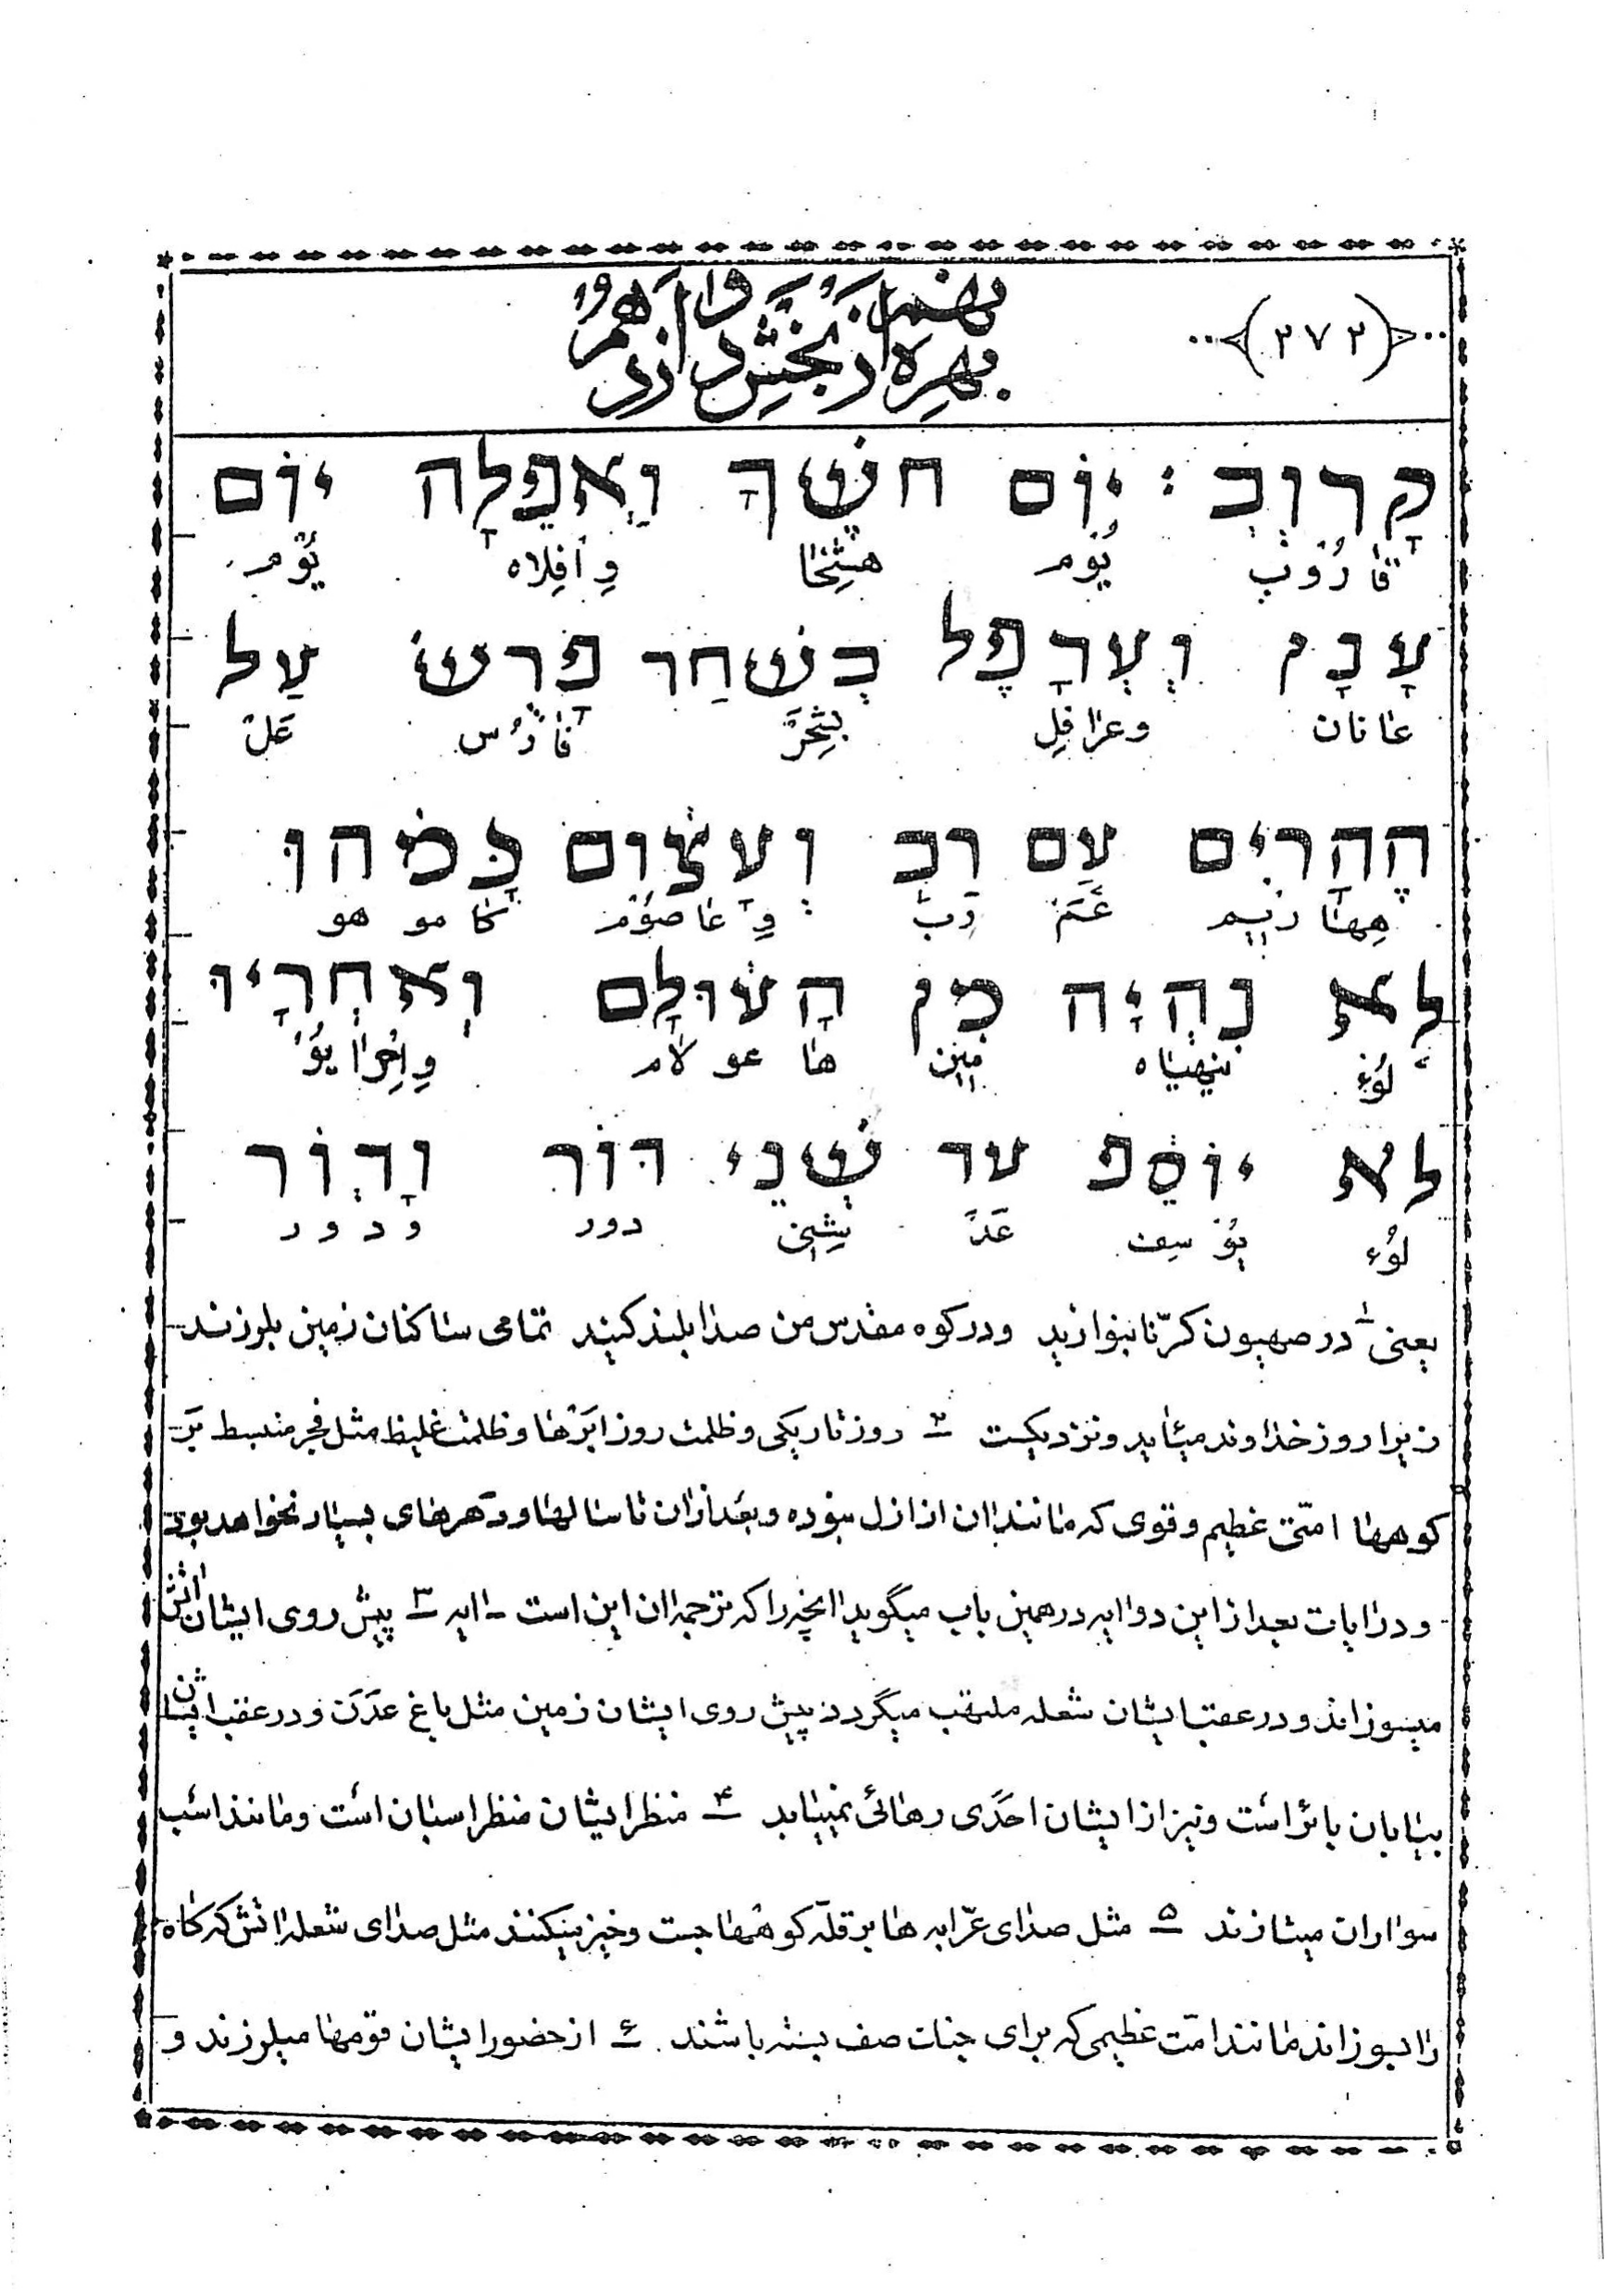 (۲۷۲)
بهره از بخش دوازدهم
קָרוֹב : יוֹם חשֶׁךְ וַאֲפֵלָה יוֹם
قاروُب یُوم هشِخا وِ اَفِلاه یُوم
עָנָן וְעֲרָפֶל כְּשַׁחַר פָּרֻשׂ עַל
عانان وعرافِل کِشَحَر فارُس عَل
הֶהָרִים עַם רַב וְעָצוּם כָּמֹהוּ
هِهاریم عَم رَب وِ عاصوُم کامو هو
לֹא נִהְיָה מִן הָעוֹלָם וְאַחֲרָיו
لوُء نِهیاه مین ها عولام وِاَخِرایوُ
לֹא יוֹסֵף עַד שְׁנֵי דוֹר וָדוֹר
لوُء یوُسِف عَد شِنِی دور و دور
یعنی ۱ در صهیون کرّنا بنوازید و در کوه مقدس من صدا بلند کنید تمامی ساکنان زمین بلرزند
زیرا روز خداوند میاید و نزدیکست ۲ روز تاریکی و ظلمت روز ابرها و ظلمت غلیظ مثل فجر منبسط بر
کوهها امتی عظیم و قوی که مانند ان از ازل نبوده و بعد از ان تا سالها و دهرهای بسیار نخواهد بود
و در ایات بعد از این دو ایه در همین باب میگوید انچه را که ترجمه ان این است ایه ۳ پیش روی ایشان اتش
میسوزاند و در عقب ایشان شعله ملتهب میگردد پیش روی ایشان زمین مثل باغ عدن و در عقب ایشان
بیابان بائر است و نیز از ایشان احدی رهائی نمییابد ۴ منظر ایشان منظر اسبان است و مانند اسب
سواران میتازند ۵ مثل صدای عرّابه ها بر قلّه کوهها جست و خیز میکنند مثل صدای شعله اتش که کاه
را بسوزاند مانند امت عظیمی که برای جنات صف بسته باشند ۶ از حضور ایشان قومها میلرزند و